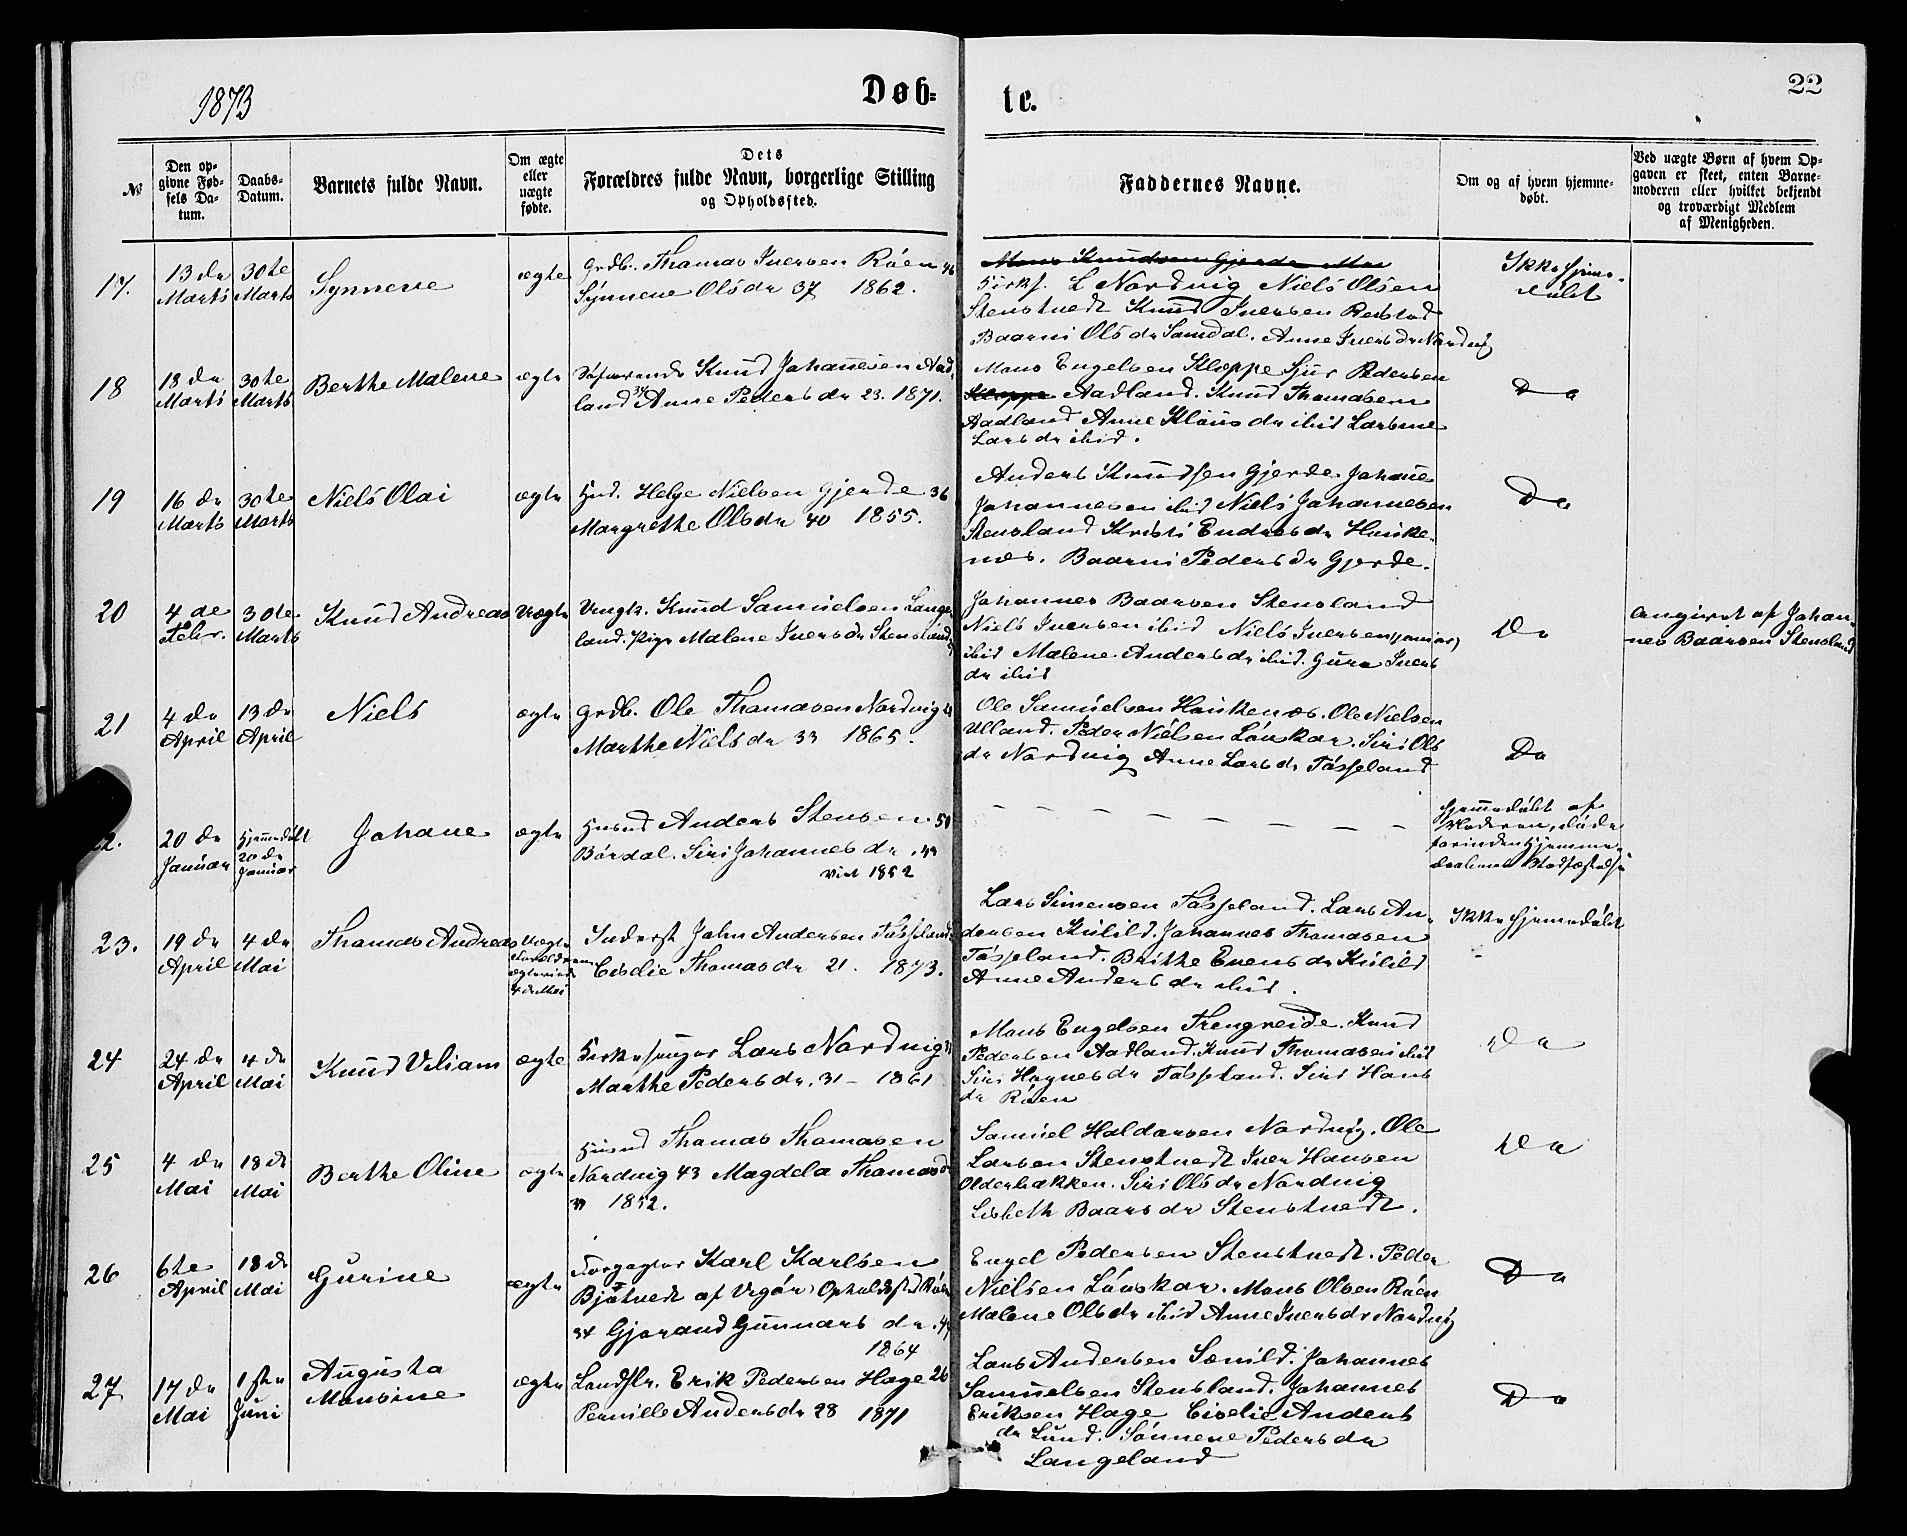 1873
Døb-
te.
22
No
Den op-
givne Fød-
sels Da-
tum.
Daabs-
Datum.
Barnets fulde Navn.
Om ægte
eller
uægte
fødte.
Dets
Forældres fulde Navn, borgerlige Stilling
og Opholdssted.
Faddernes Navne.
Om og af hvem hjemme-
døbt.
Ved uægte Børn af hvem Op-
gaven er skeet, enten Barne-
moderen eller hvilket bekjendt
og troværdigt Medlem
af Menigheden.
17.
13de
Marts
30te
Marts
Synneve
ægte
Grdb. Thomas Iversen Røen 46
Synneve Olsdr 37 1862.
Mons Knudsen Gjerde Mon
Kirks. L Nordvig Niels Olsen
Stenstvedt Knud Iversen Reistad
Baarni Olsdr Samdal. Anne Iversdr Nordvig
Ikke Hjemme-
døbt
18
18de
Marts
30te
Marts
Berthe Malene
ægte
Søfarende Knud Johannesen Aad-
land 34 Anne Pedersdr 23. 1871.
Mons Engelsen Kloppe Sjur Pedersen
Kloppe Aadland. Knud Thomasen
Aadland Anne Klausdr ibid Larsine
Larsdr ibid.
Do
19
16de
Marts
30te
Marts
Niels Olai
ægte
Husd. Helge Nielsen Gjerde 36
Margrethe Olsdr 40 1855.
Anders Knudsen Gjerde. Johanne
Johannesen ibid Niels Johannesen
Stensland Kristi Endresdr Hauke-
nes. Baarni Pedersdr Gjerde.
Do
20
4de
Febr.
30te
Marts
Knud Andreas
Uægte
Ungk. Knud Samuelsen Lange-
land. Pige Malene Iversdr Stensland
Johannes Baarsen Stensland
Niels Iversen ibid Niels Iversen junior)
ibid Malene Andersdr ibid. Gura Ivers
dr ibid
Do
Angivet af Johan-
nes Baarsen Stensland
21
4de
April
13de
April
Niels
ægte
Grdb. Ole Thomasen Nordvig
Marthe Nielsdr 33 1865.
Ole Samuelsen Haukenæs. Ole Nielsen
Ulland. Peder Nielsen Løuskar. Siri Ols
dr Nordvig Anne Larsdr Tøsseland
Do
2.
20de
Januar
Hjemmedøbt
20de
Januar
Johane
ægte
Husmd Anders Stensen 50
Børdal. Siri Johannesdr 44
viet 1852
Hjemmedøbt af
Moderen, døde
forinden Hjemme-
daabens Stadfæstelse
23.
19de
April
4de
Mai
Thomas Andreas
Uægte
Forældrene
ægteviede
4de Mai
Inderst John Andersen Tøsseland
Cisdie Thomasdr 21. 1873.
Lars Simensen Tøsseland. Lars An-
dersen Kulild. Johannes Thomasen
Tøsseland. Brithe Evensdr Kulild
Anne Andersdr ibid.
Ikke Hjemmedøbt
24
24de
April
4de
Mai
Knud Viliam
ægte
Kirkesanger Lars Nordvig
Marthe Pedersdr. 31 - 1861
Mons Engelsen Trengereide. Knud
Pedersen Aadland. Knud Thomasen ibid
Siri Hagnesdr Tøsseland. Siri Hans
dr Røen
Do
25
4de
Mai
18de
Mai
Berthe Oline
ægte
Husmd Thomas Thomasen
Nordvig 43 Magdela Thomasdr
39 1852.
Samuel Haldorsen Nordvig. Ole
Larsen Stenstvedt Iver Hansen
Olderbakken. Siri Olsdr Nordvig
Lisbeth Baarsdr Stenstvedt.
Do
26
6te
April
18de
Mai
Gurine
ægte
Forpagter Karl Karlsen
Bjøtvedt af Vigør Opholdssted Røen
34 Gjørand Gunnarsdr. 44
1864
Engel Pedersen Stenstvedt. Peder
Nielsen Løuskar. Mons Olsen Røen
Malene Olsdr ibid Anne Iversdr Nordvig
Do
27
17de
Mai
1ste
Juni
Augusta
Monsine
ægte
Landhdlr. Erik Pedersen Hage 26
Pernille Andersdr 28 1871
Lars Andersen Sænild. Johannes
Samuelsen Stensland. Johannes
Eriksen Hage Cisdie Anders
dr Lund. Sønneve Pedersdr
Langeland
Do